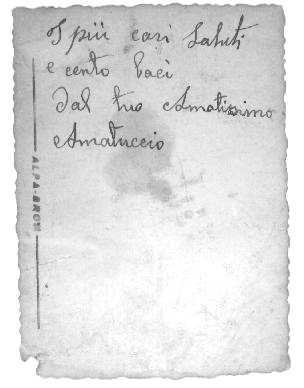 I più cari Saluti
e cento baci
Dal tuo Amatissimo
Amatuccio